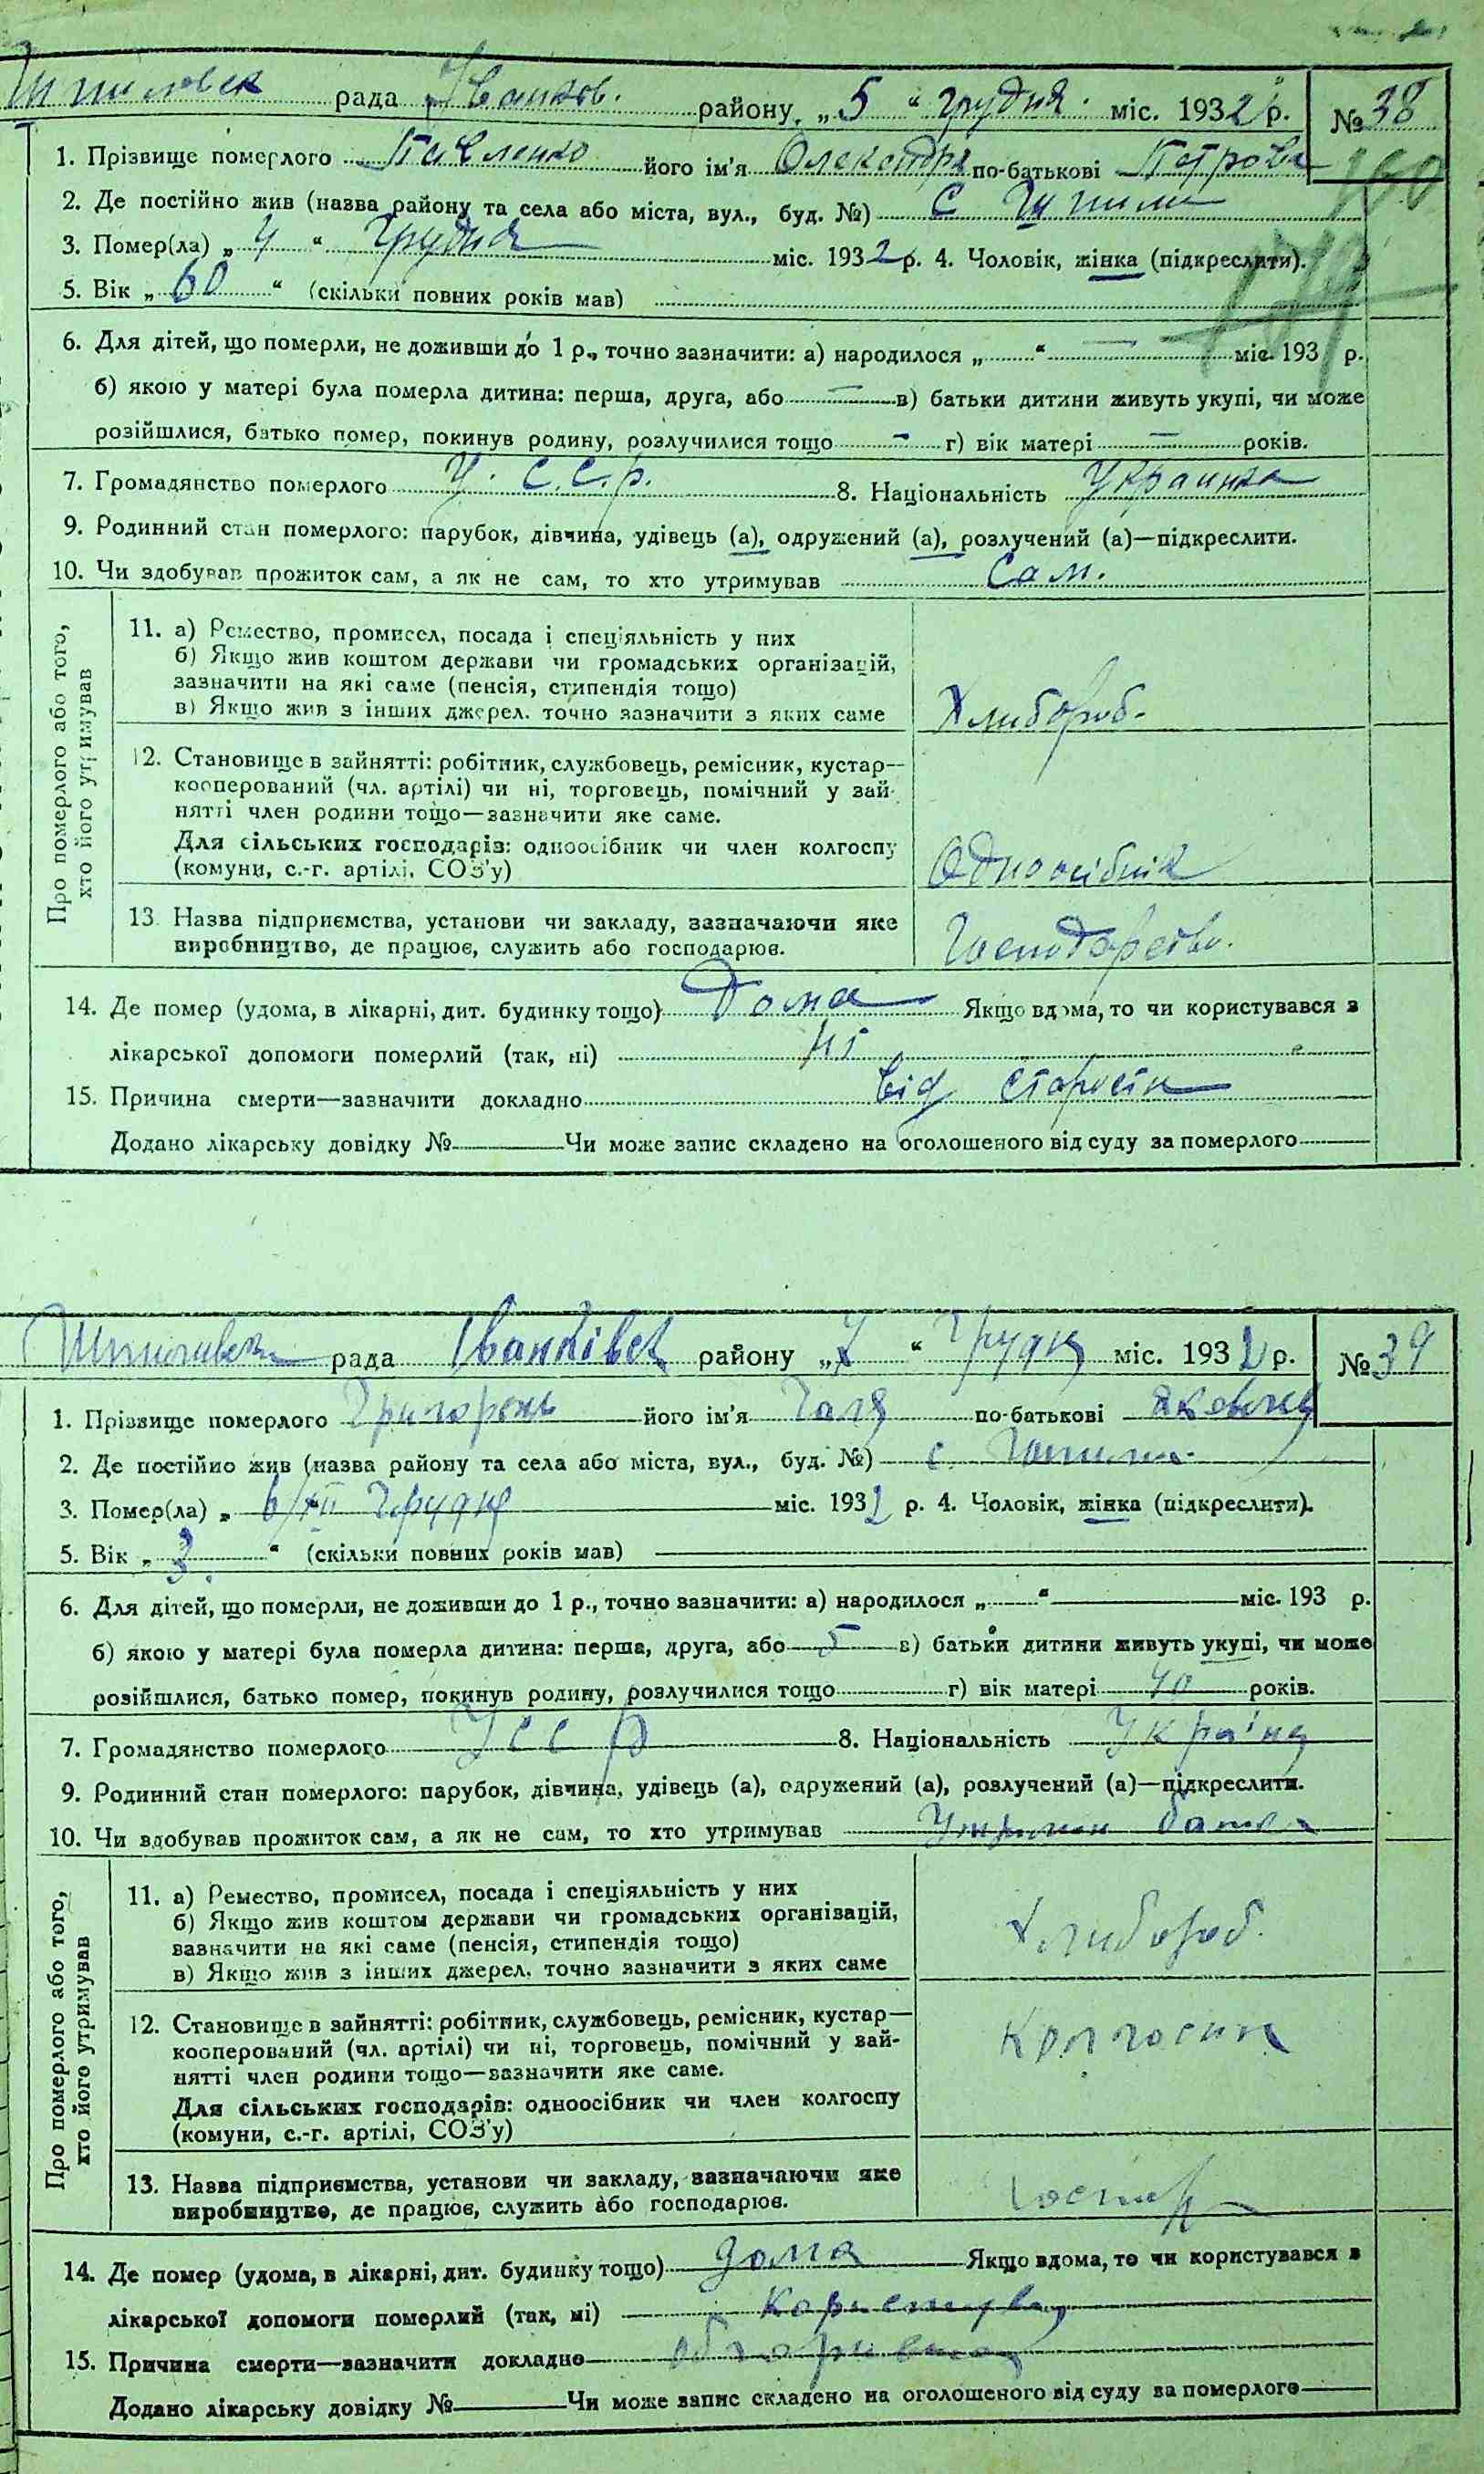 рада Іванков. району „5“ грудня міс. 1932 р. № 38
1. Прізвище померлого Павленко його ім'я Олександра по-батькові Петрова
2. Де постійно жив (назва району та села або міста, вул., буд. №) с
3. Помер(ла) „4“ Грудня міс. 1932 р. 4. Чоловік, жінка (підкреслити).
5. Вік „60“ (скільки повних років мав)
6. Для дітей, що померли, не доживши до 1 р., точно зазначити: а) народилося „ “ — міс. 193 р.
б) якою у матері була померла дитина: перша, друга, або — в) батьки дитини живуть укупі, чи може
розійшлися, батько помер, покинув родину, розлучилися тощо — г) вік матері — років.
7. Громадянство померлого У. С.С.р. 8. Національність Украинка
9. Родинний стан померлого: парубок, дівчина, удівець (а), одружений (а), розлучений (а)—підкреслити.
10. Чи здобував прожиток сам, а як не сам, то хто утримував Сам.
Про померлого або того,
хто його утримував
11. а) Ремество, промисел, посада і спеціяльність у них
б) Якщо жив коштом держави чи громадських організацій,
зазначити на які саме (пенсія, стипендія тощо)
в) Якщо жив з інших джерел. точно зазначити з яких саме
Хлибороб.
12. Становище в зайнятті: робітник, службовець, ремісник, кустар—
кооперований (чл. артілі) чи ні, торговець, помічний у зай-
нятті член родини тощо—зазначити яке саме.
Для сільських господарів: одноосібник чи член колгоспу
(комуни, с.-г. артілі, СОЗ'у)
Одноосібник
13. Назва підприємства, установи чи закладу, зазначаючи яке
виробництво, де працює, служить або господарює.
14. Де помер (удома, в лікарні, дит. будинку тощо) Дома Якщо вдома, то чи користувався з
лікарської допомоги померлий (так, ні) ні
15. Причина смерти—зазначити докладно від старости
Додано лікарську довідку № Чи може запис складено на оголошеного від суду за померлого
рада Іванківск району „ “ Грудня міс. 1932 р. № 39
1. Прізвище померлого його ім'я Галя по-батькові Яковлева
2. Де постійно жив (назва району та села або міста, вул., буд. №) с.
3. Помер(ла) „6/XII Грудня міс. 1932 р. 4. Чоловік, жінка (підкреслити).
5. Вік „3.“ (скільки повних років мав)
6. Для дітей, що померли, не доживши до 1 р., точно зазначити: а) народилося „ “ міс. 193 р.
б) якою у матері була померла дитина: перша, друга, або 5 в) батьки дитини живуть укупі, чи може
розійшлися, батько помер, покинув родину, розлучилися тощо г) вік матері 40 років.
7. Громадянство померлого УССР 8. Національність
9. Родинний стан померлого: парубок, дівчина, удівець (а), одружений (а), розлучений (а)—підкреслити.
10. Чи здобував прожиток сам, а як не сам, то хто утримував
Про померлого або того,
хто його утримував
11. а) Ремество, промисел, посада і спеціяльність у них
б) Якщо жив коштом держави чи громадських організацій,
зазначити на які саме (пенсія, стипендія тощо)
в) Якщо жив з інших джерел. точно зазначити з яких саме
Хлибороб.
12. Становище в зайнятті: робітник, службовець, ремісник, кустар—
кооперований (чл. артілі) чи ні, торговець, помічний у зай-
нятті член родини тощо—зазначити яке саме.
Для сільських господарів: одноосібник чи член колгоспу
(комуни, с.-г. артілі, СОЗ'у)
13. Назва підприємства, установи чи закладу, зазначаючи яке
виробництво, де працює, служить або господарює.
14. Де помер (удома, в лікарні, дит. будинку тощо) дома Якщо вдома, то чи користувався з
лікарської допомоги померлий (так, ні)
15. Причина смерти—зазначити докладно
Додано лікарську довідку № Чи може запис складено на оголошеного від суду за померлого